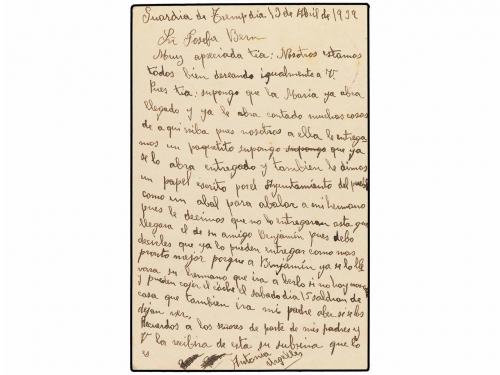 Guardia de Tremp dia 12 de Abril de 1939
Sr Josefa Bern
Muy apreciada tia: Nosotros estamos
todos bien deseando igualmente a V.
Pues tia: supongo que la Maria ya abra
llegado y ya le abra contado muchas cosas
de aqui riba pues nosotros a ella le entrega-
mos un paquetito supongo supongo que ya
se lo abra entregado y tambien le dimos
un papel escrito por el Ayuntamiento del pueblo
como un abal para abalar a mi hermano
pues le decimos que no lo entregaran asta que
llegara el de su amigo Benjamin pues debo
decirles que ya lo pueden entregar como mas
pronto mejor porque a Benjamin ya se lo lle
vara su hermano que ira a berlo si no hoy
y pueden cojer el coche el sabado dia 15 saldran de
casa que tambien ira mi padre aber si se los
dejan ver.
Recuerdos a los señores de parte de mis padres y
V la recibra de esta su subrina que lo
es
Antonia